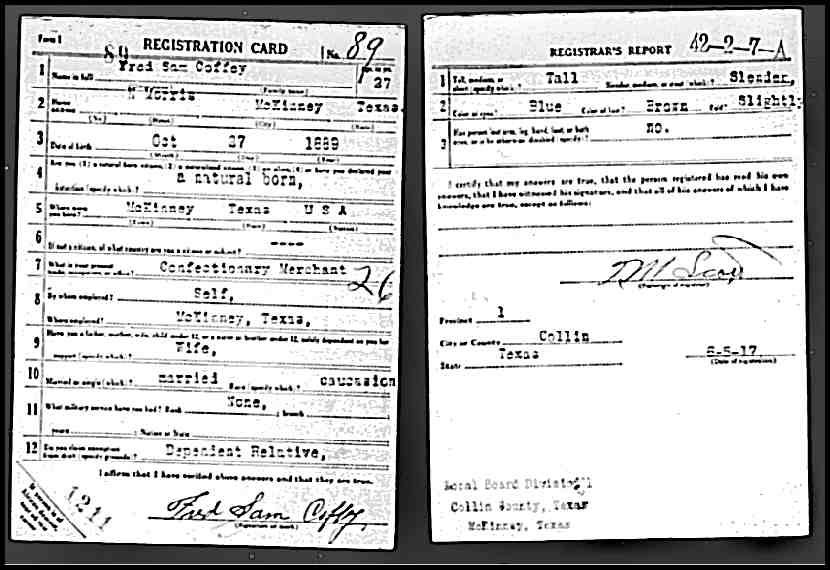 Form 1
89 REGISTRATION CARD No. 89
1 Fred Sam Coffey 27
Name in full
(Family name)
2 N Morris McKinney Texas.
Home address
(No.) (Street) (City) (State)
3 Date of birth Oct 27 1889
(Month) (Day) (Year)
4 Are you (1) a natural born citizen, (2) a naturalized citizen, (3) an alien, (4) or have you declared your
intention (specify which)? a natural born,
5 Where were you born? McKinney Texas U S A
(Town) (State) (Nation)
6 If not a citizen, of what country are you a citizen or subject? ----
7 What is your present trade, occupation, or office? Confectionary Merchant 26
8 By whom employed? Self,
Where employed? McKinney, Texas,
9 Have you a father, mother, wife, child under 12, or a sister or brother under 12, solely dependent on you for
support (specify which)? Wife,
10 Married or single (which)? married Race (specify which)? caucasion
11 What military service have you had? Rank None, ; branch
years ; Nation or State
12 Do you claim exemption from draft (specify grounds)? Dependent Relative,
I affirm that I have verified above answers and that they are true.
1211
Fred Sam Coffey
(Signature or mark)
REGISTRAR'S REPORT 42-2-7-A
1 Tall, medium, or short (specify which)? Tall Slender, medium, or stout (which)? Slender,
2 Color of eyes? Blue Color of hair? Brown Bald? Slightly
3 Has person lost arm, leg, hand, foot, or both eyes, or is he otherwise disabled (specify)? no.
I certify that my answers are true, that the person registered has read his own
answers, that I have witnessed his signature, and that all of his answers of which I have
knowledge are true, except as follows:
(Signature of registrar)
Precinct 1
City or County Collin
State Texas 6-5-17.
(Date of registration)
Local Board Division 1
Collin County, Texas
McKinney, Texas